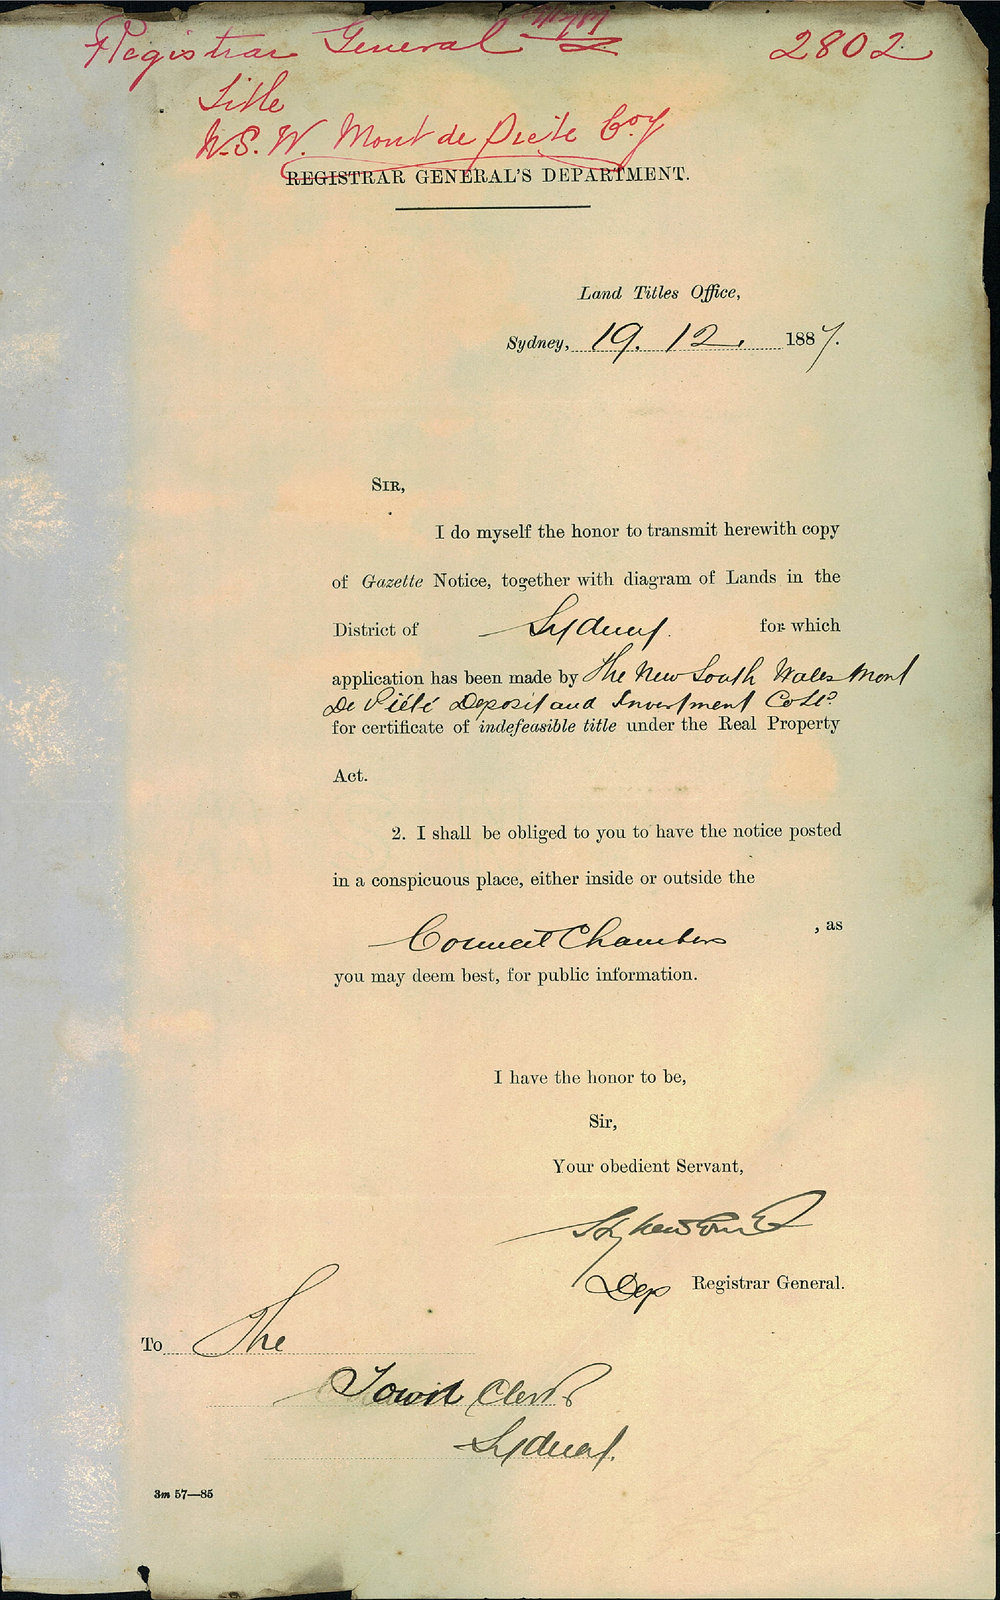 Registrar General 2802
Title
N.S.W. Mont de Piete Coy
REGISTRAR GENERAL'S DEPARTMENT.
Land Titles Office,
Sydney, 19. 12. 1887.
SIR,
I do myself the honor to transmit herewith copy
of Gazette Notice, together with diagram of Lands in the
District of Sydney. for which
application has been made by The New South Wales Mont
De Piété Deposit and Investment Co Ld
for certificate of indefeasible title under the Real Property
Act.
2. I shall be obliged to you to have the notice posted
in a conspicuous place, either inside or outside the
Council Chambers , as
you may deem best, for public information.
I have the honor to be,
Sir,
Your obedient Servant,
Dep Registrar General.
To The
Town Clerk
Sydney.
3m 57—85